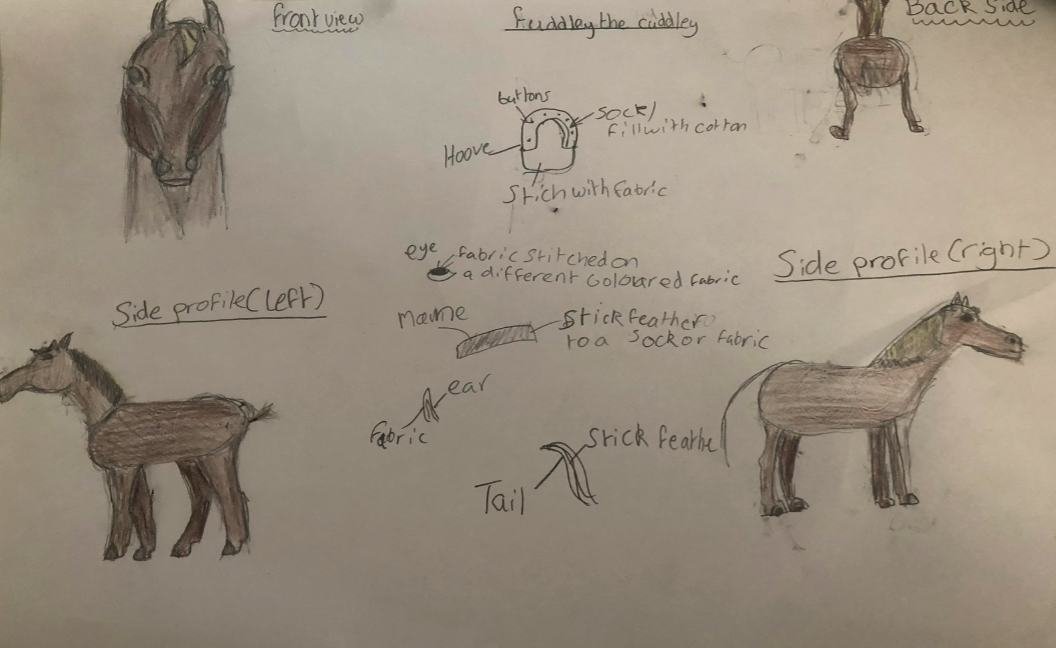 Front view
Fuddley the cuddley
Back Side
buttons
Sock/
fill with cotton
Hoove
Stich with fabric
eye
fabric stitched on
a different coloured fabric
Side profile (right)
Side profile (Left)
Maine
Stick feather
to a sock or fabric
ear
fabric
Stick feathe
Tail